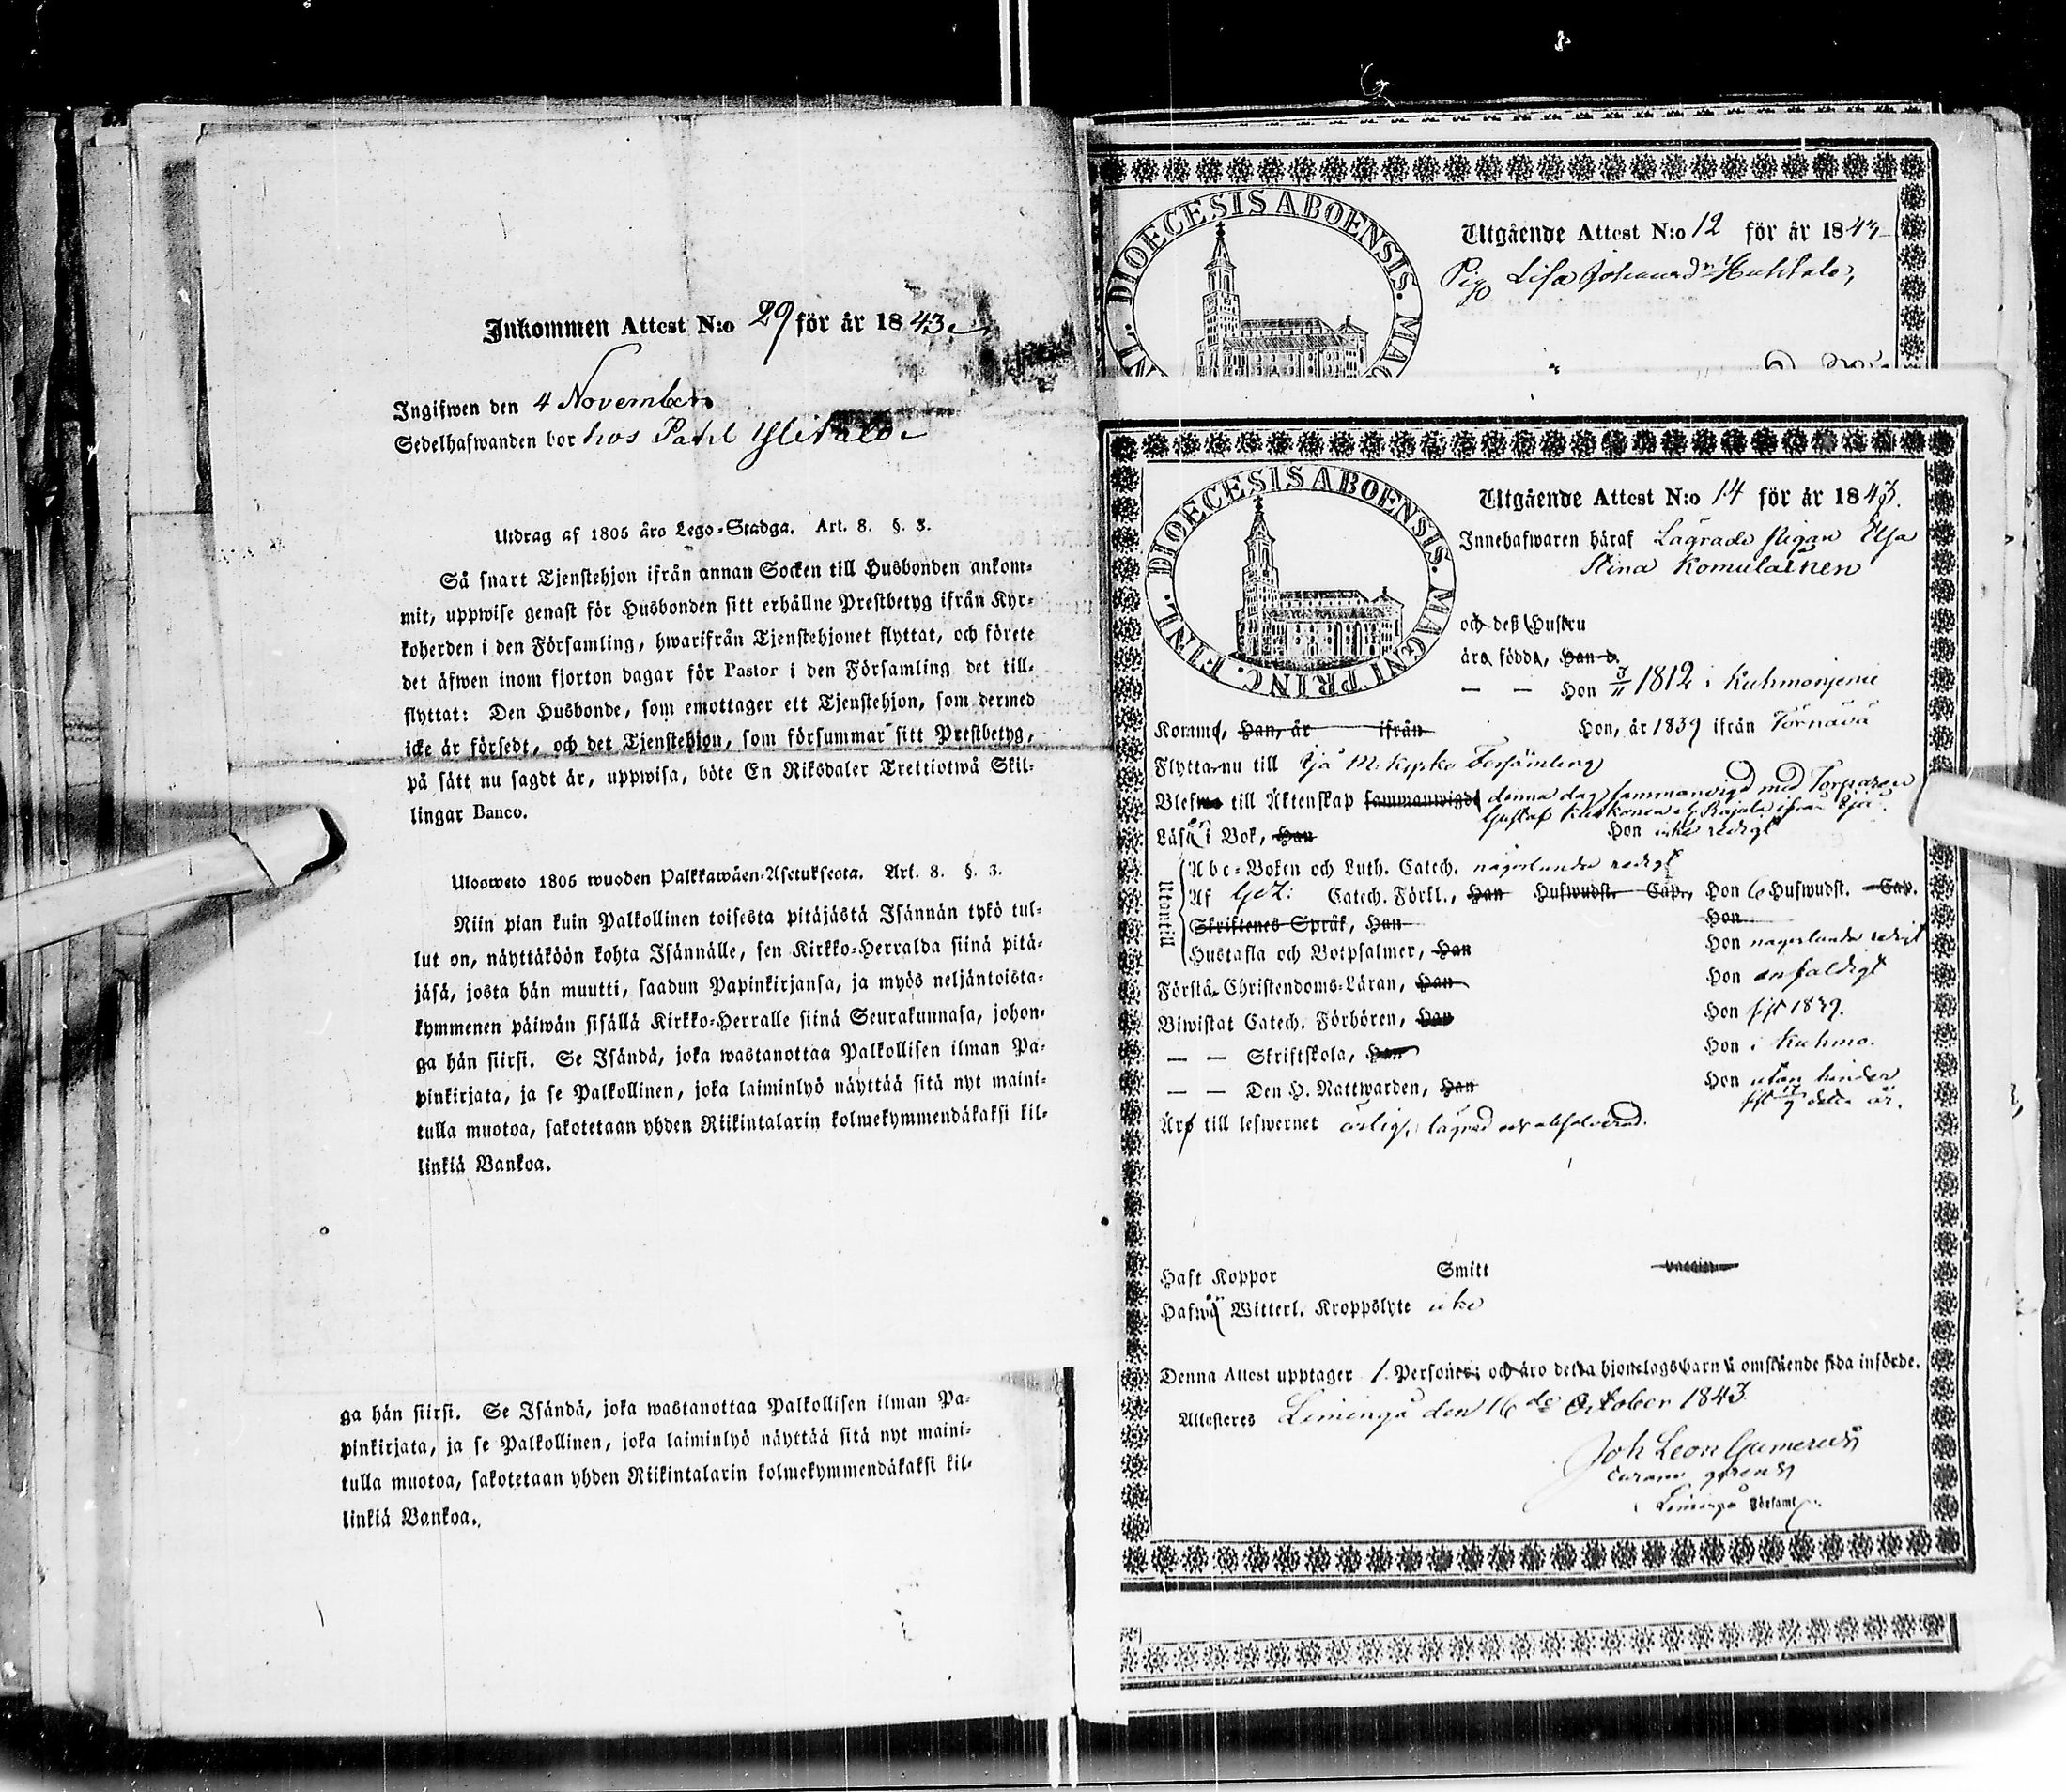 Inkommen Attest N:o 29 för år 1843.
Ingifwen den 4 November
Sedelhafwanden bor hos Pahl Ylitalo
Utdrag af 1805 års Lego-Stadga. Art. 8. §. 3.
Så snart Tjenstehjon ifrån annan Socken till Husbonden ankom-
mit, uppwise genast för Husbonden sitt erhållne Prestbetyg ifrån Kyr-
koherden i den Församling, hwarifrån Tjenstehjonet flyttat, och förete
det äfwen inom fjorton dagar för Pastor i den Församling det till-
flyttat: Den Husbonde, som emottager ett Tjenstehjon, som dermed
icke är försedt, och det Tjenstehjon, som försummar sitt Prestbetyg,
på sätt nu sagdt är, uppwisa, böte En Riksdaler Trettiotwå Skil-
lingar Banco.
Ulosweto 1805 wuoden Palkkawäen-Asetuksesta. Art. 8. §. 3.
Niin pian kuin Palkollinen toisesta pitäjästä Isännän tykö tul-
lut on, näyttäköön kohta Isännälle, sen Kirkko-Herralda siinä pitä-
jäsä, josta hän muutti, saadun Papinkirjansa, ja myös neljäntoista-
kymmenen päiwän sisällä Kirkko-Herralle siinä Seurakunnasa, johon-
ga hän siirsi. Se Isändä, joka wastanottaa Palkollisen ilman Pa-
pinkirjata, ja se Palkollinen, joka laiminlyö näyttää sitä nyt maini-
tulla muotoa, sakotetaan yhden Riikintalarin kolmekymmendäkaksi kil-
linkiä Bankoa.
ga hän siirsi. Se Isändä, joka wastanottaa Palkollisen ilman Pa-
pinkirjata, ja se Palkollinen, joka laiminlyö näyttää sitä nyt maini-
tulla muotoa, sakotetaan yhden Riikintalarin kolmekymmendäkaksi kil-
linkiä Bankoa.
DIOECESIS ABOENSIS. MAG
Utgående Attest N:o 12 för år 1843
Pig Lisa Johansdr Huhtala,
DIOECESIS ABOENSIS. MAGNI PRINC. FINL.
Utgående Attest N:o 14 för år 1843.
Innehafwaren häraf Lägrade pigan Elsa
Stina Komulainen
och deß Hustru
äro födda, Han d.
— — Hon 3/11 1812 i Kuhmoniemi
Komme, Han, år ifrån Hon, år 1839 ifrån Törnävä
Flytta nu till Ijå M. kyrko Församling
Blefwo till Äktenskap sammanwigde denna dag sammanvigd med Torparen
Gustaf ifrån Ijå.
Läsa i Bok, Han Hon icke redigt
Utantill
Abc-Boken och Luth. Catech. någorlunda redigt
Af Catech. Förkl., Han Hufwudst. Cap. Hon 6 Hufwudst. Cap.
Skriftenes Språk, Han Hon
Hustafla och Botpsalmer, Han Hon någorlunda redigt
Förstå Christendoms-Läran, Han Hon enfaldigt
Biwistat Catech. Förhören, Han Hon sist 1839.
— — Skriftskola, Han Hon i Kuhmo.
— — Den H. Nattwarden, Han Hon utan hinder
sist 17/9 detta år.
Äro till lefwernet ärlig, lägrad och absolverad.
Haft Koppor Smitt vaccin
Hafwa Witterl. Kroppslyte icke
Denna Attest upptager 1 Personer; och äro detta hjonelags barn å omstående sida införde.
Attesteras Limingå den 16de October 1843.
Joh Leon Gumerus
curam gerens
i Limingå Församl.